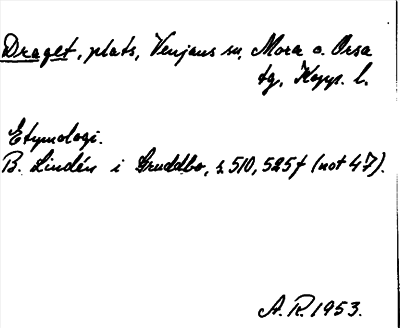 Draget, plats, Venjans sn, Mora o. Orsa
tg, Kopp. l.
Etymologi.
B. Lindén i Gruddbo, s. 510, 525 f (not 47).
A. R. 1953.